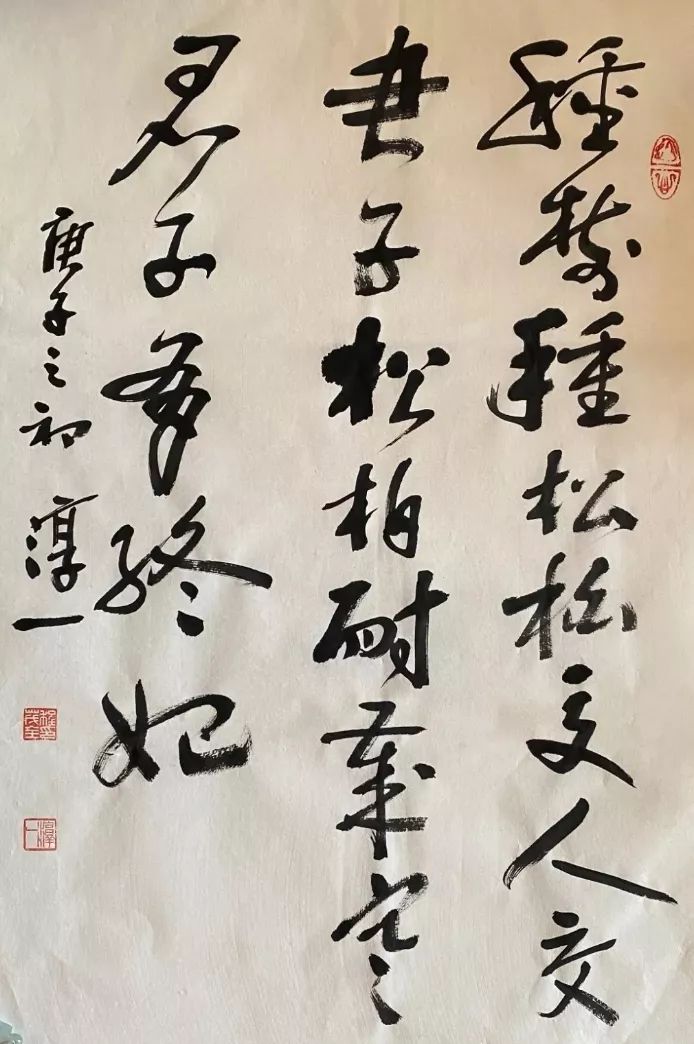 種樹種松柏交人交
君子松柏耐歲寒
君子有終始
庚子之初 淳一